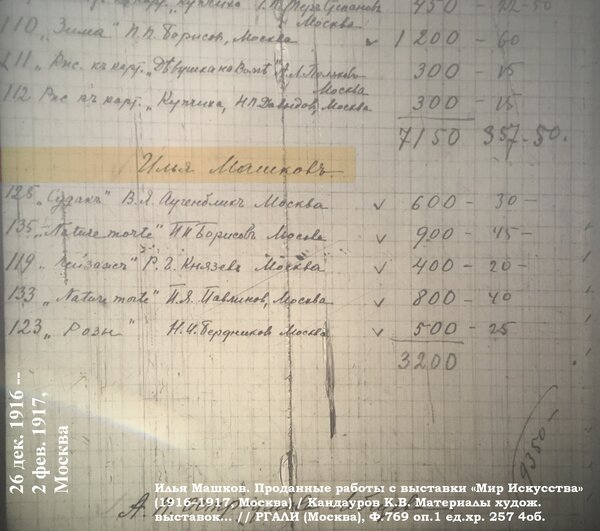 карт. купчиха 450 – 22-50
Москва
110 „Зима" П.П. Борисов, Москва v 1200 – 60
111 „Рис. къ карт. „Дѣвушка на Волгѣ" 300 – 15
Москва
112 Рис къ карт. „Купчиха, Н.П. Давыдов, Москва 300 – 15
7150 357-50.
Илья Машковъ
125 „Судакъ" В.Я. Аугенбликъ Москва v 600 – 30 –
135 „Nature morte" П.П. Борисовъ Москва v 900 – 45 –
119 „Пейзажъ" Р. Г. Князевъ Москва v 400 – 20 –
133 „Nature morte" П.Я. Павлинов, Москва v 800 – 40
123 „Розы" Н.И. Бердников Москва v 500 – 25
3200
9350 –
26 дек. 1916 --
2 фев. 1917,
Москва
Илья Машков. Проданные работы с выставки «Мир Искусства»
(1916-1917, Москва) / Кандауров К.В. Материалы худож.
выставок... // РГАЛИ (Москва), Ф.769 оп.1 ед.хр. 257 4об.